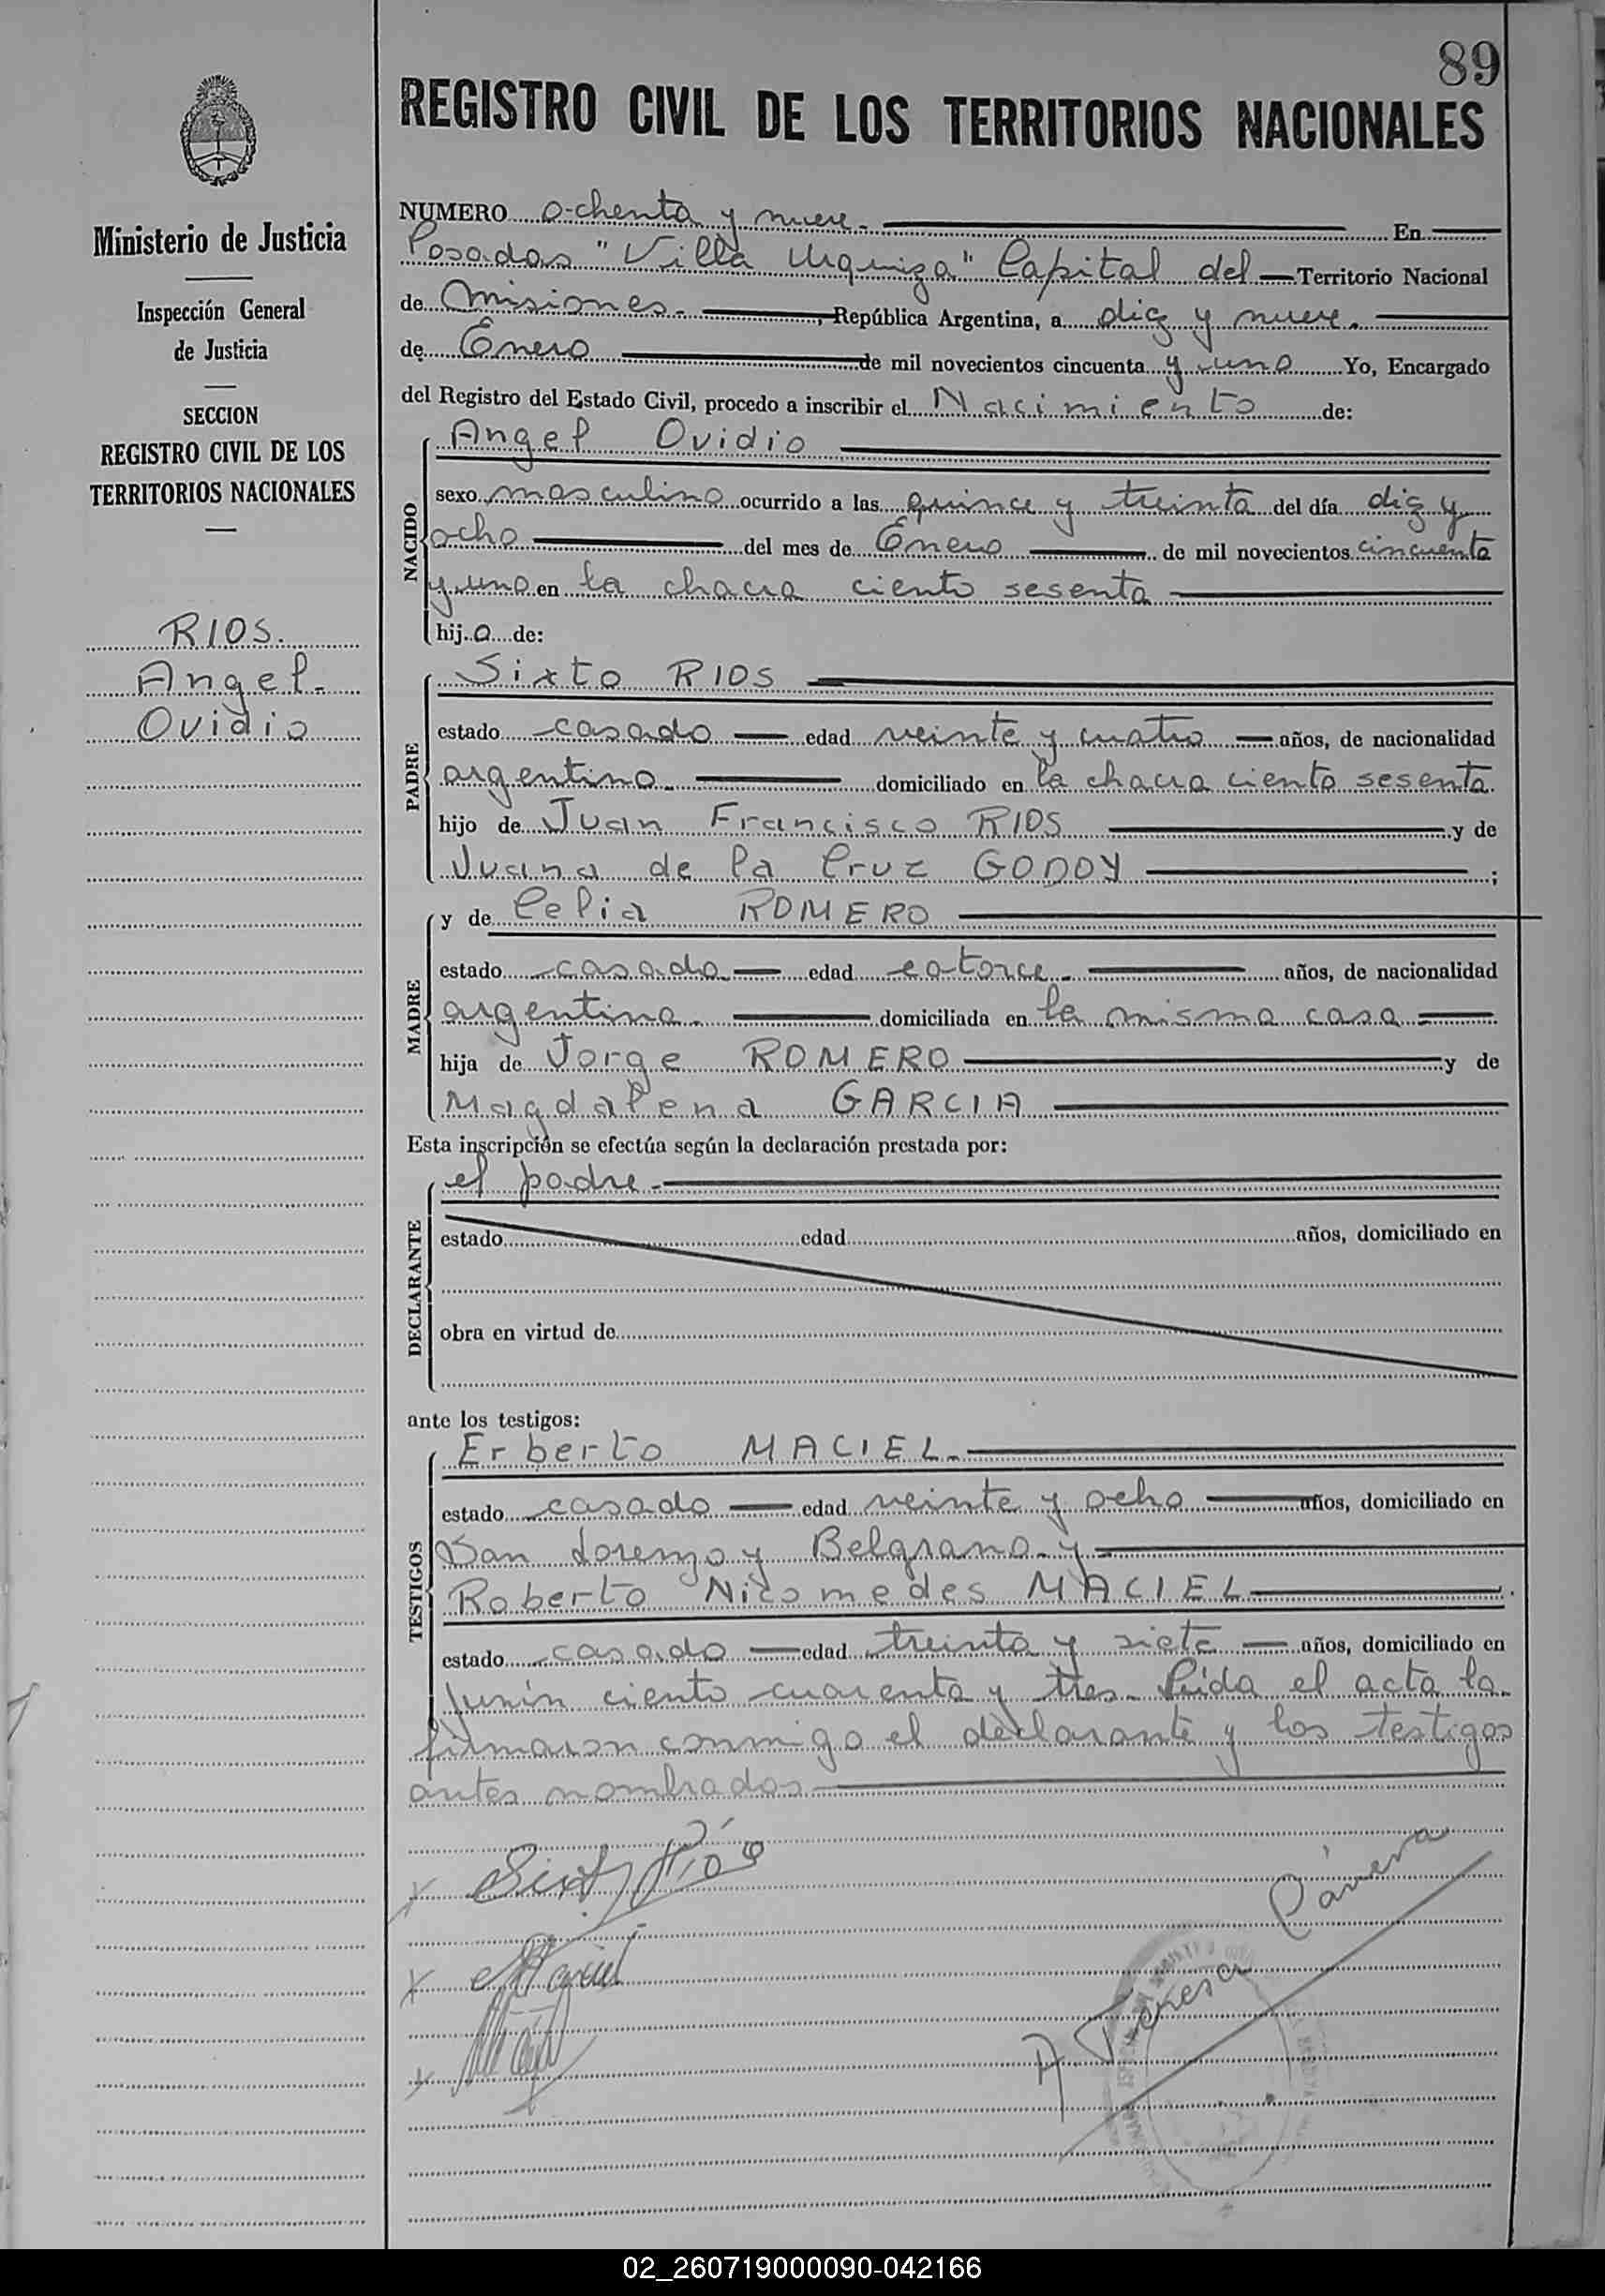 89
REGISTRO CIVIL DE LOS TERRITORIOS NACIONALES
Ministerio de Justicia
Inspección General
de Justicia
SECCION
REGISTRO CIVIL DE LOS
TERRITORIOS NACIONALES
RIOS.
Angel.
Ovidio
NUMERO ochenta y nueve. En
Posadas "Villa Urquiza" Capital del Territorio Nacional
de Misiones. , República Argentina, a diez y nueve.
de Enero de mil novecientos cincuenta y uno Yo, Encargado
del Registro del Estado Civil, procedo a inscribir el Nacimiento de:
NACIDO
Angel Ovidio
sexo masculino ocurrido a las quince y treinta del día diez y
ocho del mes de Enero de mil novecientos cincuenta
y uno en la chacra ciento sesenta
hij o de:
PADRE
Sixto RIOS
estado casado edad veinte y cuatro años, de nacionalidad
argentino. domiciliado en la chacra ciento sesenta.
hijo de Juan Francisco RIOS y de
Juana de la Cruz GODOY ;
MADRE
y de Celia ROMERO
estado casada edad catorce. años, de nacionalidad
argentina. domiciliada en la misma casa
hija de Jorge ROMERO y de
Magdalena GARCIA
Esta inscripción se efectúa según la declaración prestada por:
DECLARANTE
el padre.
estado edad años, domiciliado en
obra en virtud de
ante los testigos:
TESTIGOS
Erberto MACIEL.
estado casado edad veinte y ocho años, domiciliado en
San Lorenzo y Belgrano. y
Roberto Nicomedes MACIEL
estado casado edad treinta y siete años, domiciliado en
Junín ciento cuarenta y tres. Leída el acta la
firmaron conmigo el declarante y los testigos
antes nombrados.
Sixto Ríos
Maciel
A Teresa
02_260719000090-042166